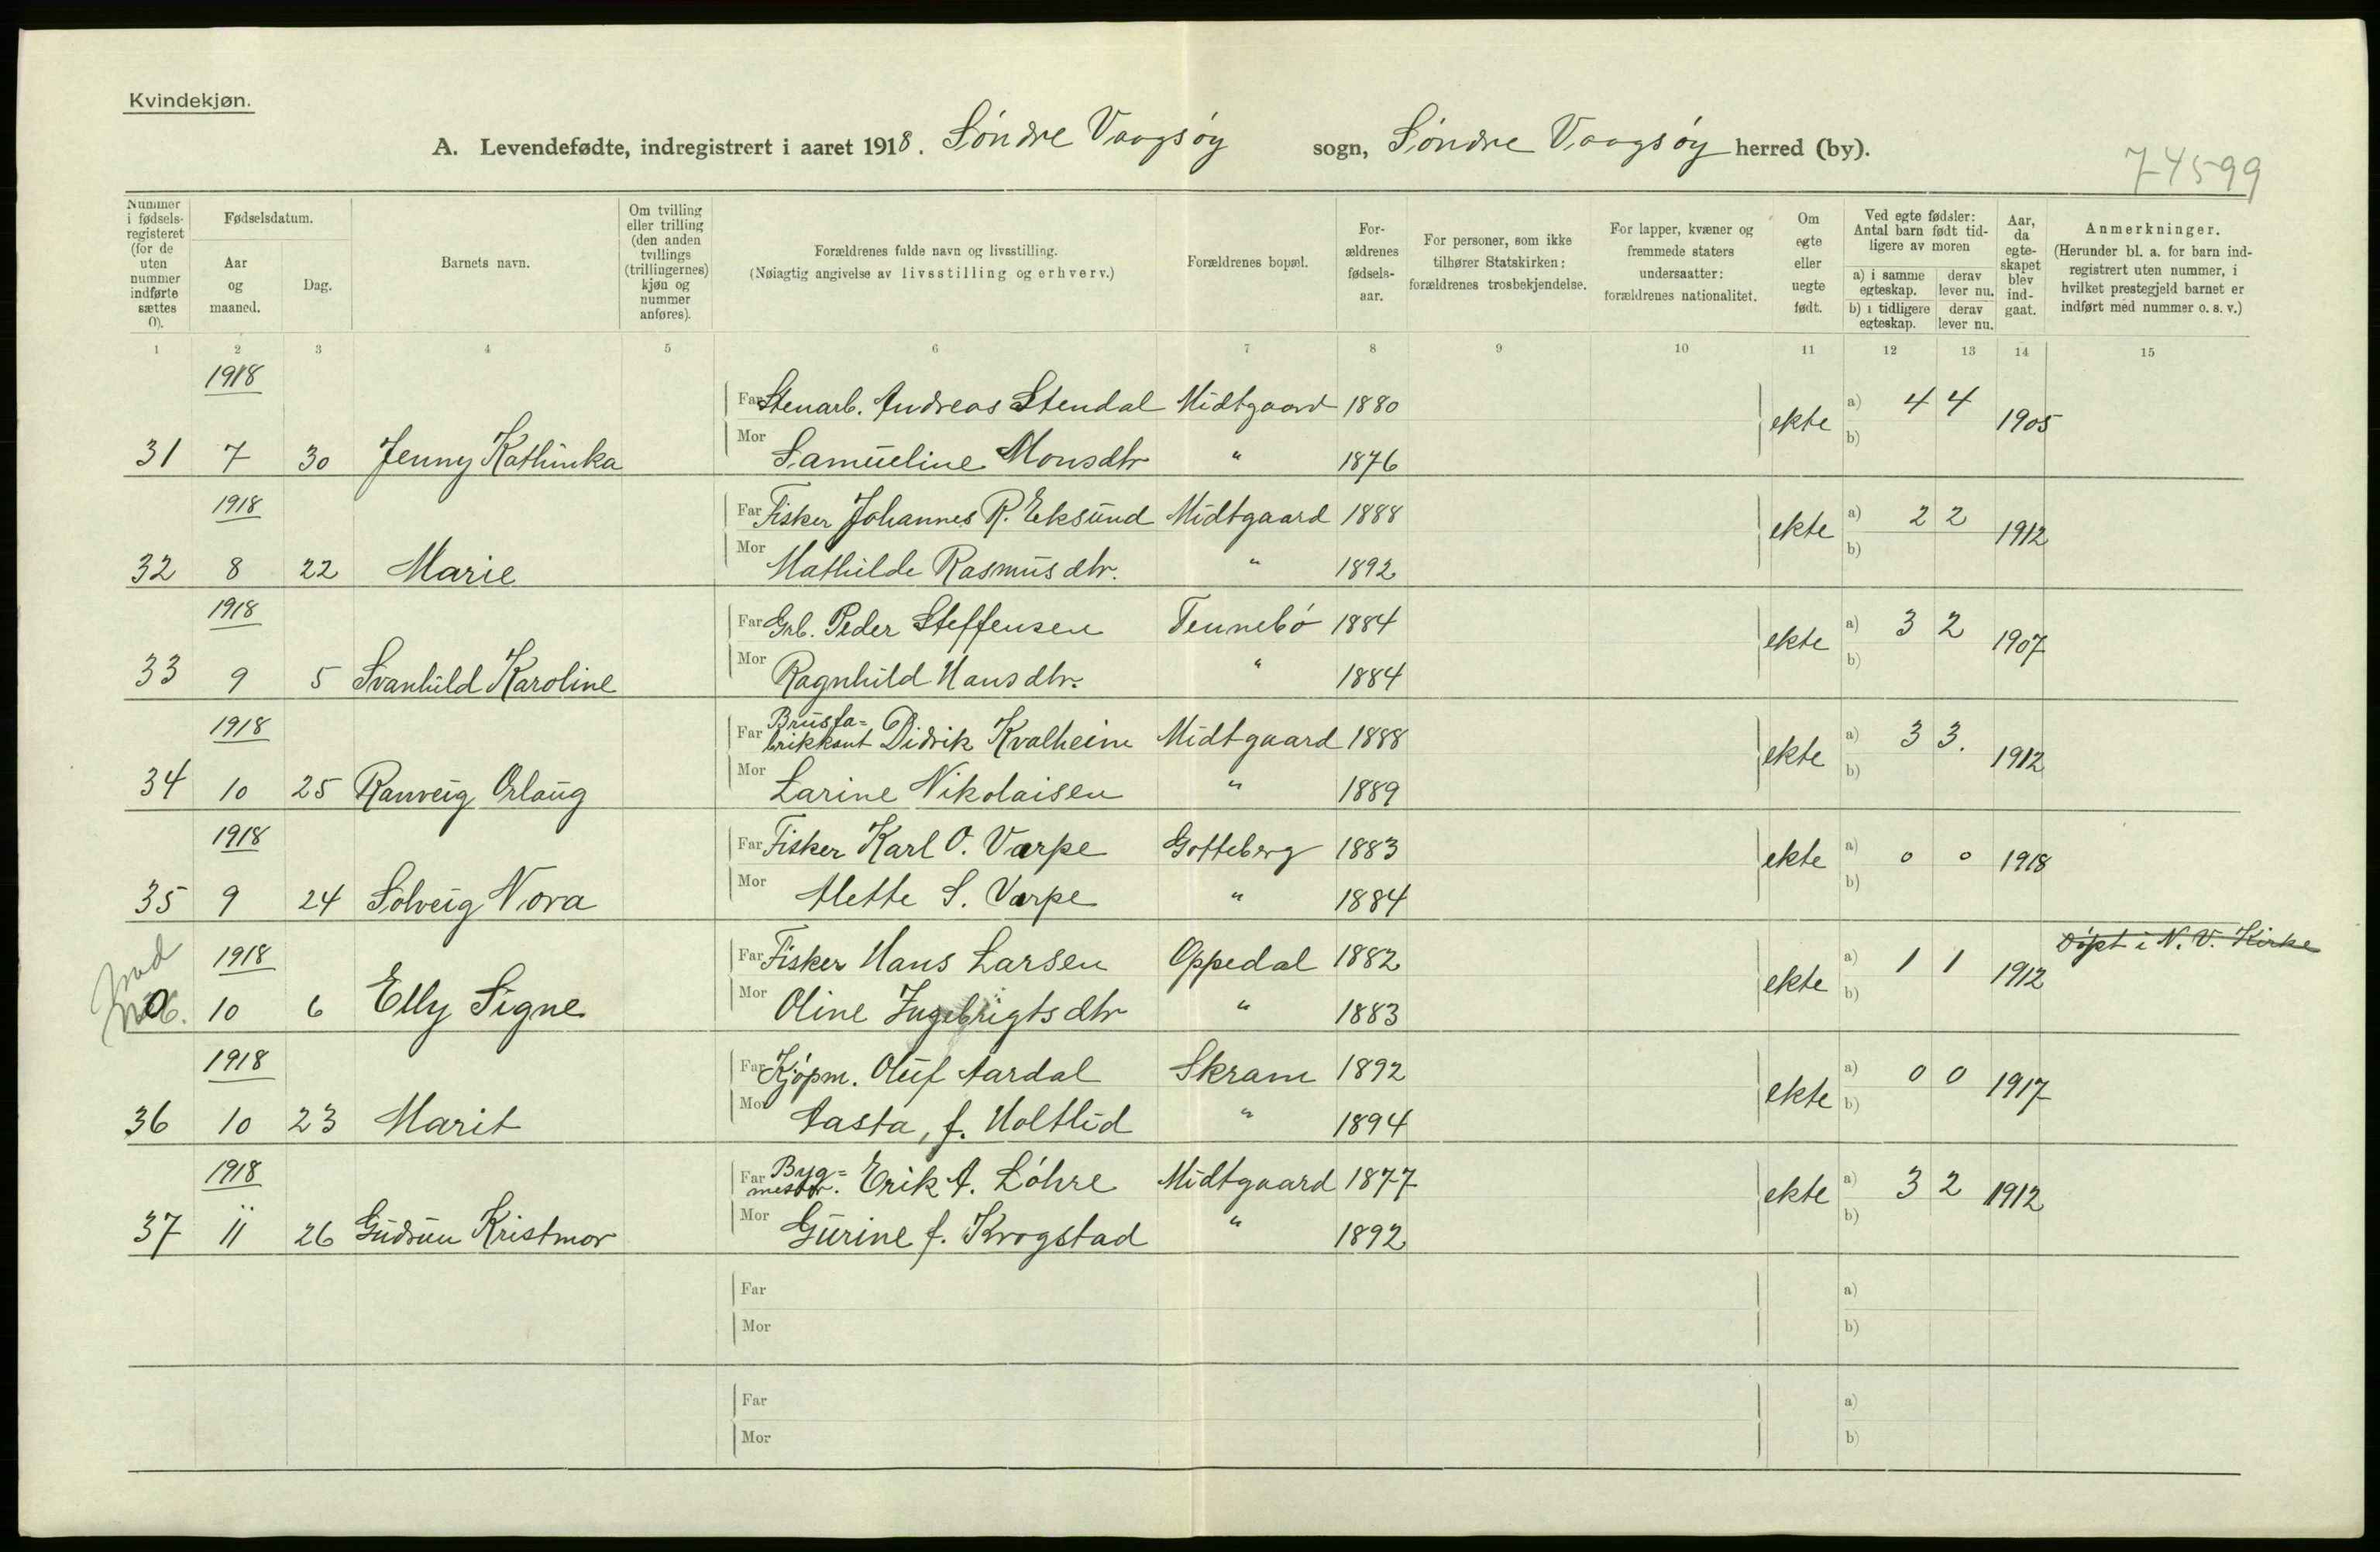 Kvindekjøn.
A. Levendefødte, indregistrert i aaret 1918. Söndre Vaagsøy sogn, Söndre Vaagsøy herred (by).
74599
Nummer i fødselsregisteret (for de uten nummer indførte sættes 0).
Fødselsdatum.
Aar og maaned.
Dag.
Barnets navn.
Om tvilling eller trilling (den anden tvillings (trillingernes) kjøn og nummer anføres).
Forældrenes fulde navn og livsstilling.
(Nøiagtig angivelse av livsstilling og erhverv.)
Forældrenes bopæl.
For-ældrenes fødsels-aar.
For personer, som ikke tilhører Statskirken: forældrenes trosbekjendelse.
For lapper, kvæner og fremmede staters undersaatter: forældrenes nationalitet.
Om egte eller uegte født.
Ved egte fødsler: Antal barn født tid-ligere av moren
a) i samme egteskap.
derav lever nu.
b) i tidligere egteskap.
derav lever nu.
Aar, da egte-skapet blev ind-gaat.
Anmerkninger.
(Herunder bl. a. for barn ind-registrert uten nummer, i hvilket prestegjeld barnet er indført med nummer o. s. v.)
1 2 3 4 5 6 7 8 9 10 11 12 13 14 15
1918
Far Stenarb. Andreas Stendal Midtgaard 1880
ekte a) 4 4 1905
b)
31 7 30 Jenny Kathinka Mor Samueline Monsdtr " 1876
1918
Far Fisker Johannes R. Eksund Midtgaard 1888
ekte a) 2 2 1912
b)
32 8 22 Marie Mor Mathilde Rasmusdtr. " 1892
1918
Far Grb. Peder Steffensen Tennebö 1884
ekte a) 3 2 1907
b)
33 9 5 Svanhild Karoline Mor Ragnhild Hansdtr. " 1884
1918
Far Brusfa=brikkant Didrik Kvalheim Midtgaard 1888
ekte a) 3 3. 1912
b)
34 10 25 Ranveig Orlaug Mor Larine Nikolaisen " 1889
1918
Far Fisker Karl O. Varpe Gotteberg 1883
ekte a) 0 0 1918
b)
35 9 24 Solveig Nora Mor Mette S. Varpe " 1884
1918
Far Fisker Hans Larsen Oppedal 1882
ekte a) 1 1 1912 Döpt i N. V. Kirke
b)
0 10 6 Elly Signe Mor Oline Ingebrigtsdtr " 1883
1918
Far Kjöpm. Oluf Aardal Skram 1892
ekte a) 0 0 1917
b)
36 10 23 Marit Mor Aasta, f. Holtlid " 1894
1918
Far Byg=mester. Erik A. Löhre Midtgaard 1877
ekte a) 3 2 1912
b)
37 11 26 Gudrun Kristmor Mor Gurine f. Krogstad " 1892
Far
a)
Mor
b)
Far
a)
Mor
b)